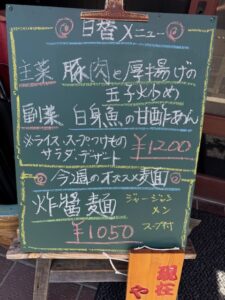 日替メニュー
主菜 豚肉と厚揚げの
玉子火少め
副菜 白身魚の甘酢あん
※ライス、スープ、つけもの
サラダ、デザート ¥1200
今週のオススメ麺
炸醬麺 ジャージャン
メン
スープ付
¥1050
現在
や